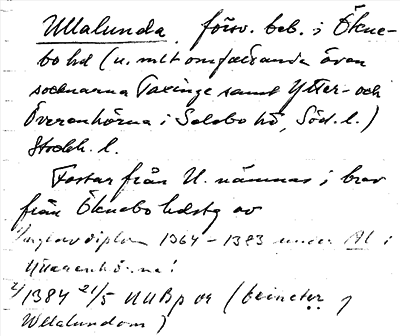 Ullalunda, försv. beb. i Ökne-
bo hd (u. mlt omfattande även
socknarna Taxinge samt Ytter- och
Överenhörna i Selebo hd, Söd. l.)
Stockh. l.
Fastar från U. nämnas i brev
från Öknebo hdstg av
diplom 1364 – 1383 under Al i
Ytterenhörna!
2/ 1384 21/5 NUBp
Wlalundom)